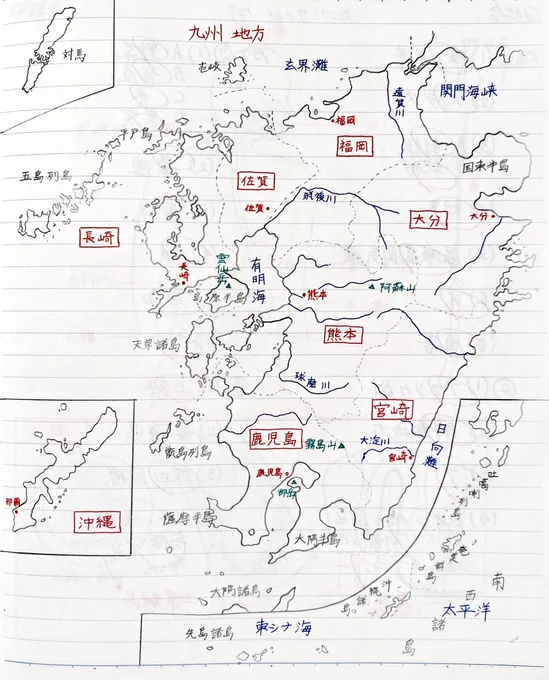 九州 地方
対馬
壱岐
玄界灘
関門海峡
遠賀川
福岡
福岡
平戸島
国東半島
五島列島
佐賀
佐賀
筑後川
大分
大分
長崎
長崎
雲仙岳
有明海
阿蘇山
島原半島
熊本
熊本
天草諸島
球磨川
宮崎
鹿児島
霧島山
大淀川
宮崎
日向灘
甑島列島
鹿児島
御岳
吐噶喇列島
那覇
沖縄
薩摩半島
大隅半島
奄美群島
大隅諸島
沖縄諸島
南西諸島
太平洋
先島諸島
東シナ海